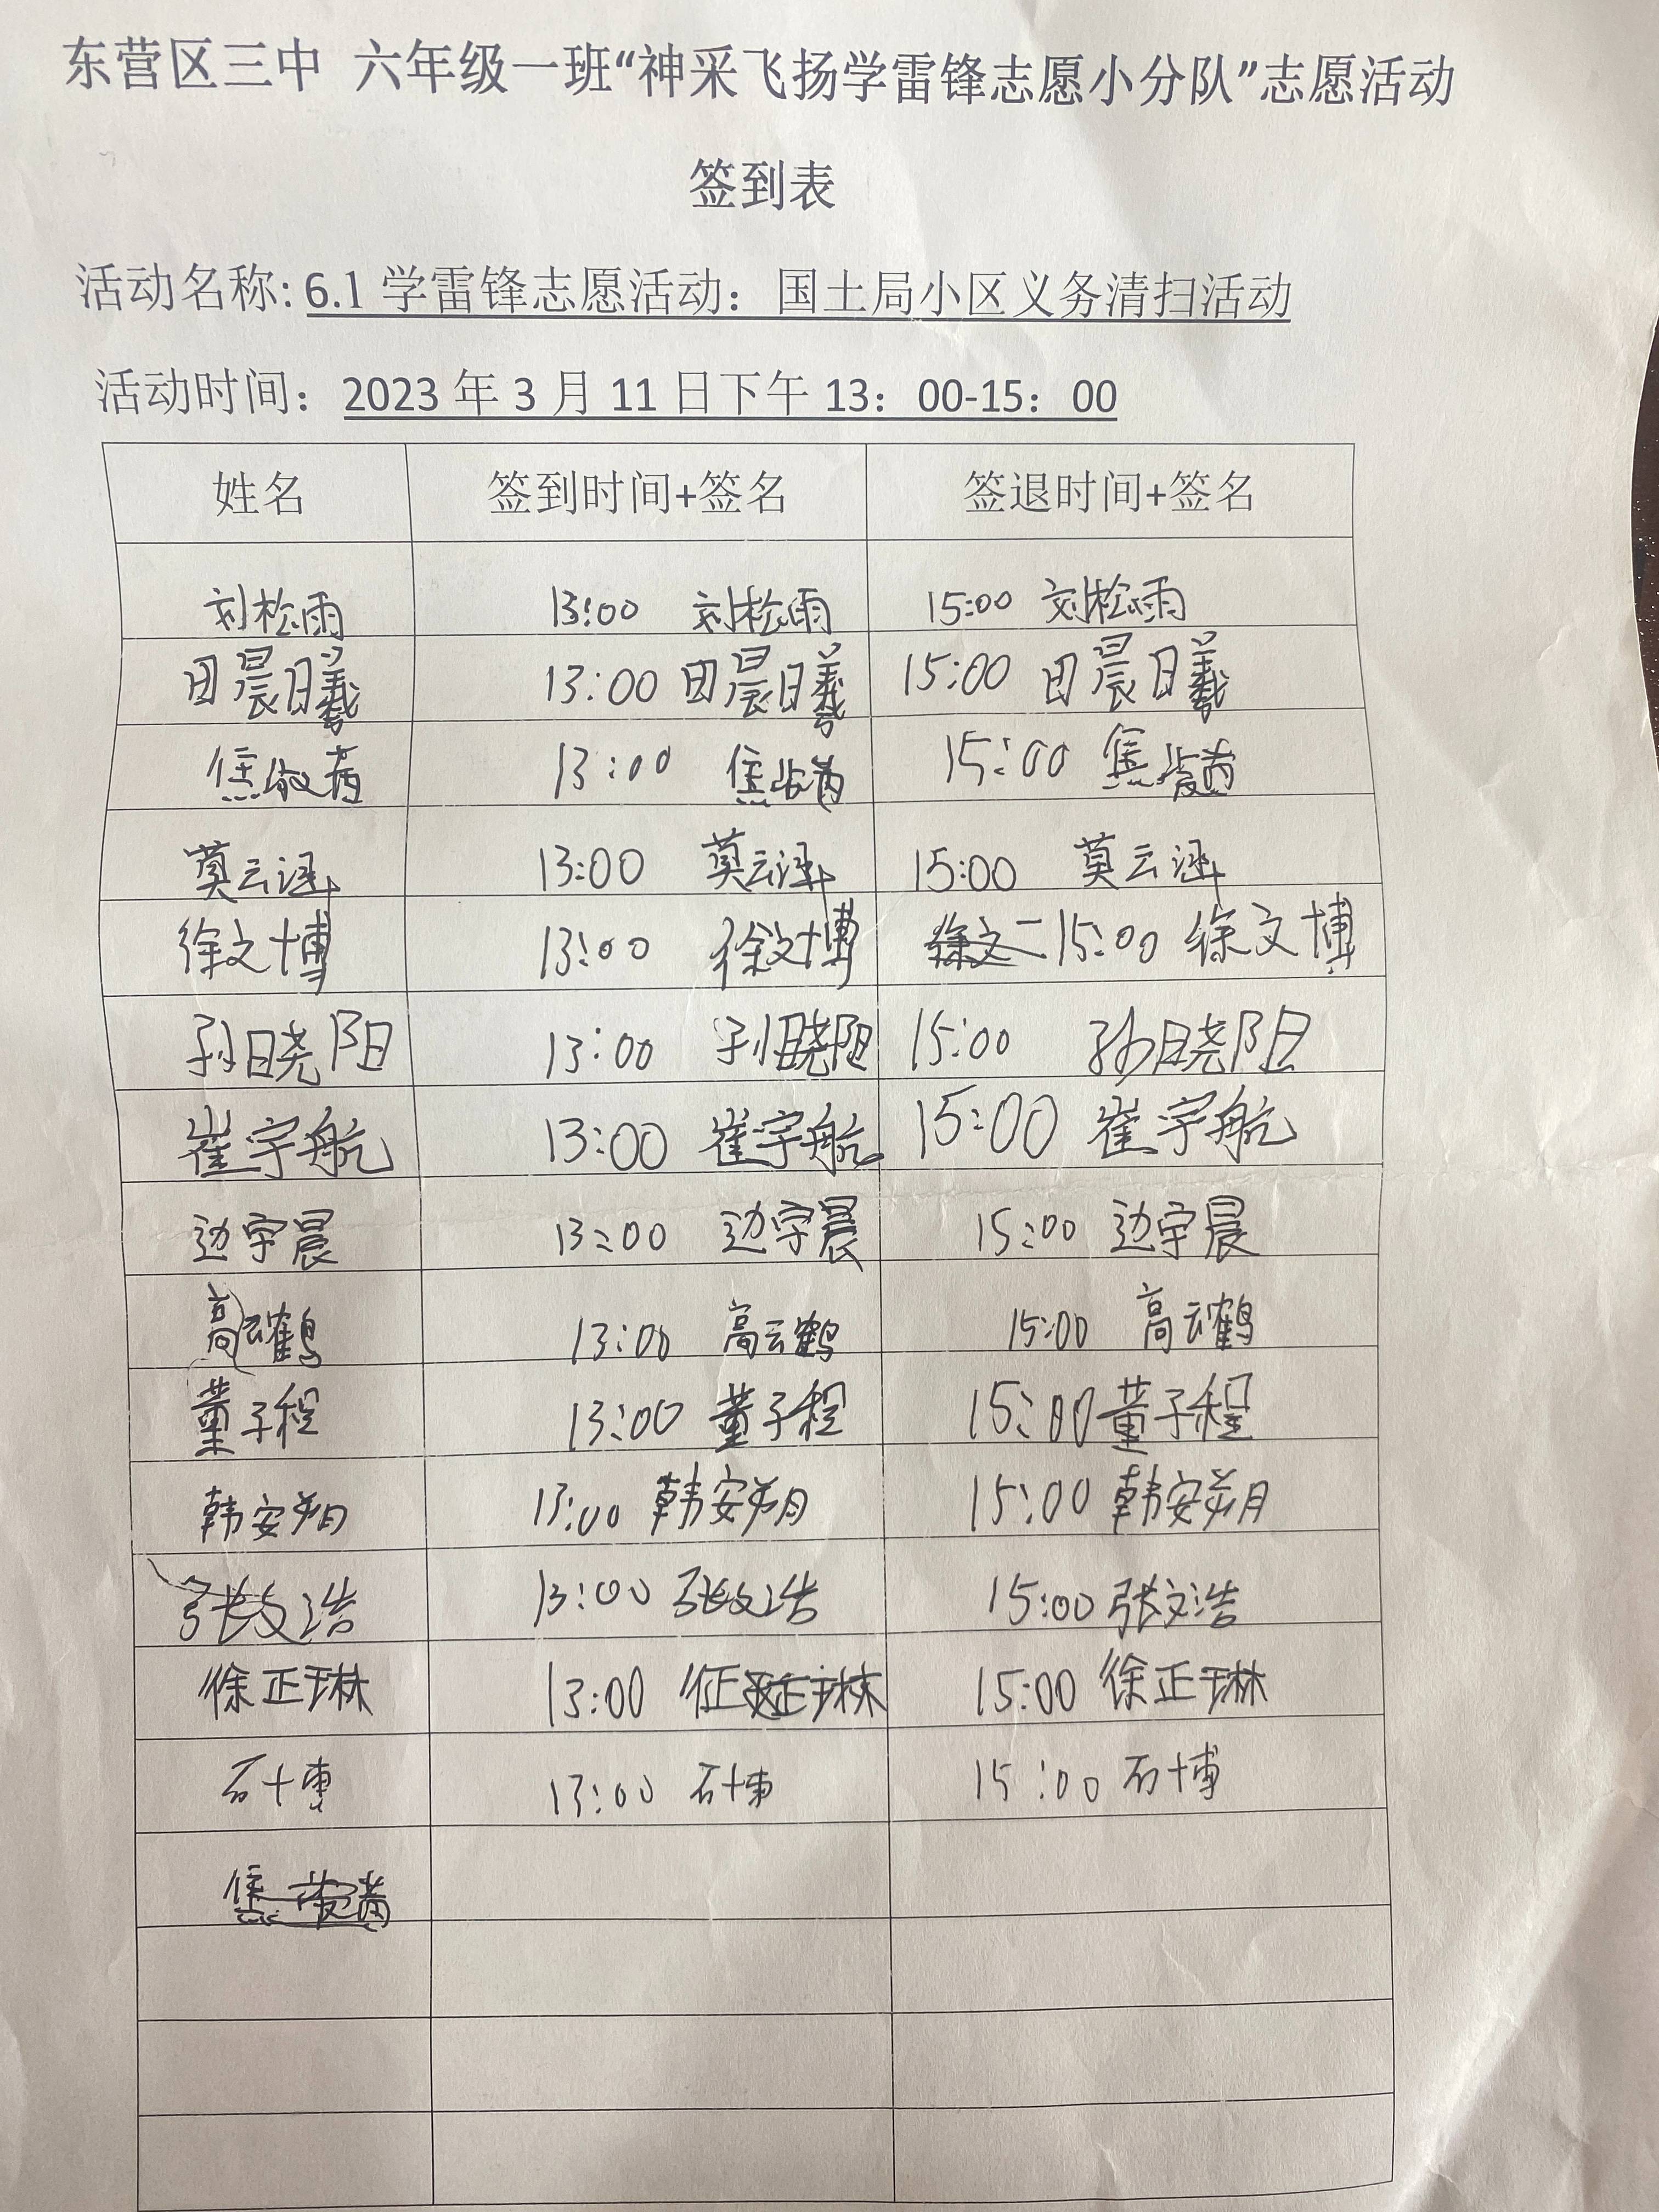 东营区三中 六年级一班“神采飞扬学雷锋志愿小分队”志愿活动
签到表
活动名称: 6.1 学雷锋志愿活动：国土局小区义务清扫活动
活动时间：2023 年 3 月 11 日下午 13：00-15：00
姓名 签到时间+签名 签退时间+签名
刘松雨 13:00 刘松雨 15:00 刘松雨
田晨曦 13:00 田晨曦 15:00 田晨曦
焦 13:00 焦 15:00 焦
莫云涵 13:00 莫云涵 15:00 莫云涵
徐文博 13:00 徐文博 徐文 15:00 徐文博
孙晓阳 13:00 孙晓阳 15:00 孙晓阳
崔宇航 13:00 崔宇航 15:00 崔宇航
边宇晨 13:00 边宇晨 15:00 边宇晨
高云鹤 13:00 高云鹤 15:00 高云鹤
董子程 13:00 董子程 15:00 董子程
韩安朔 13:00 韩安朔 15:00 韩安朔
张文浩 13:00 张文浩 15:00 张文浩
徐正琳 13:00 正琳 15:00 徐正琳
石博 13:00 石博 15:00 石博
焦